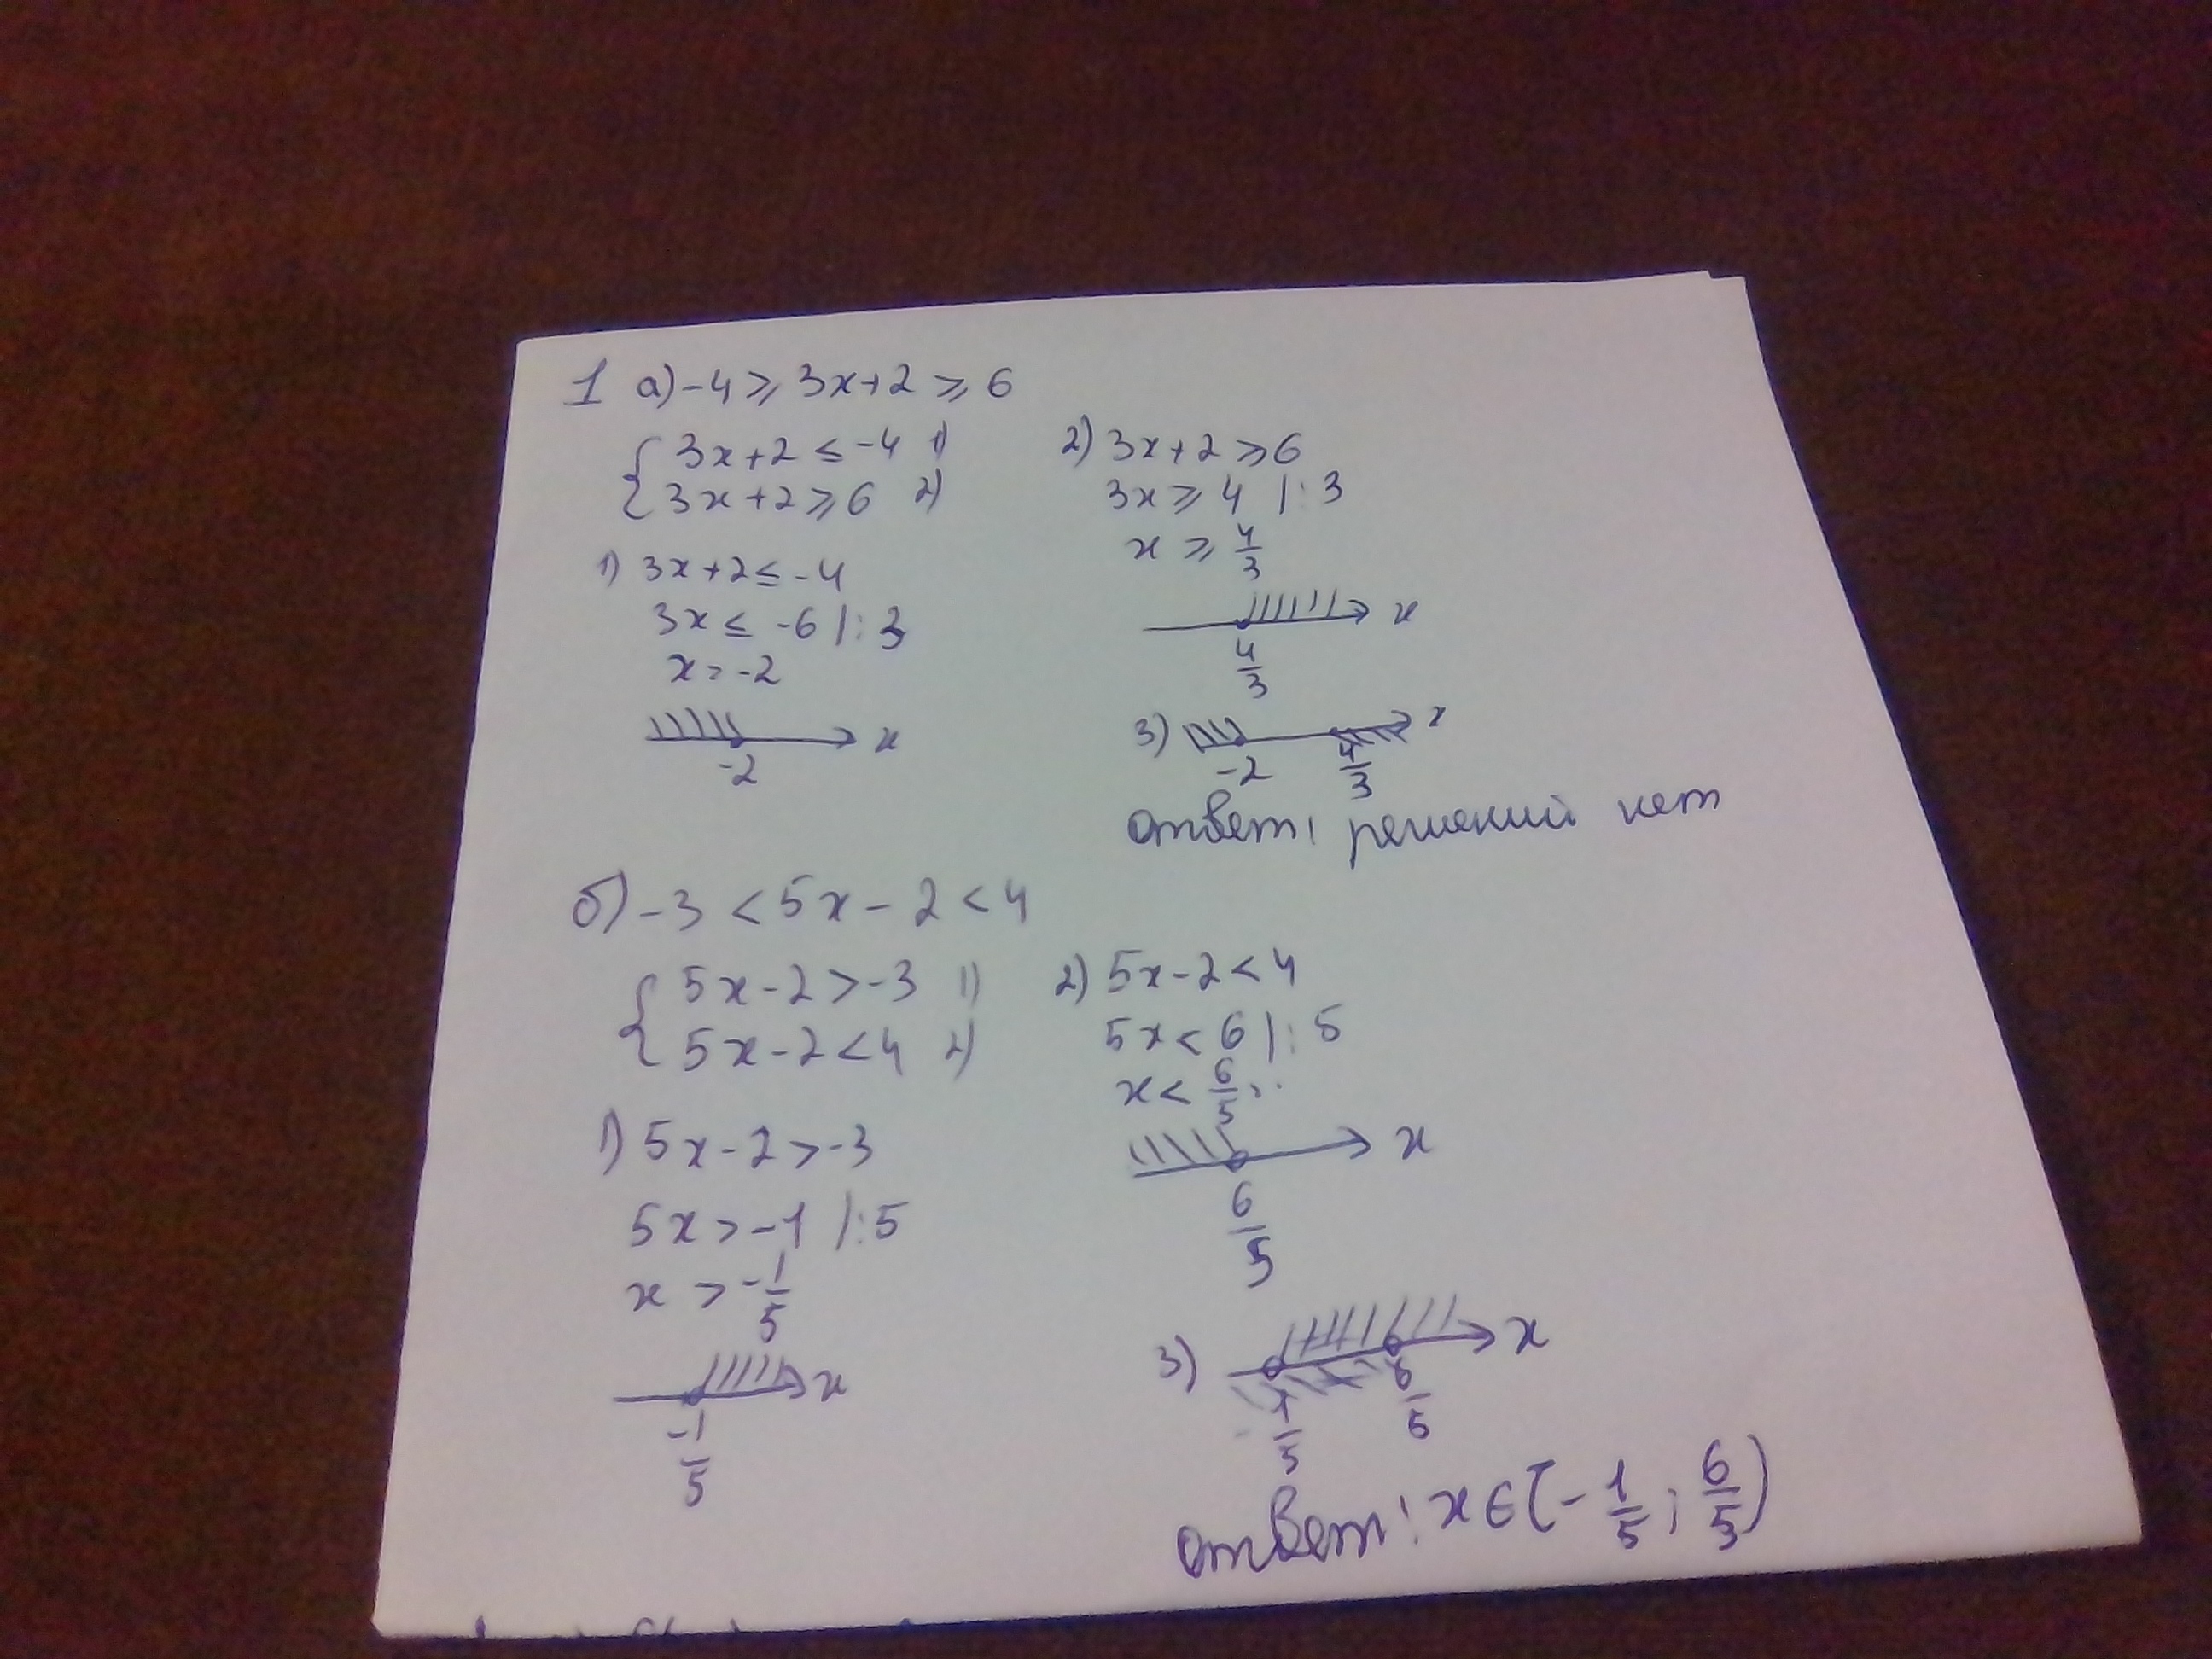 1 а) -4 ⩾ 3x+2 ⩾ 6
{ 3x+2 ≤ -4 1)
3x+2 ⩾ 6 2)
1) 3x+2 ≤ -4
3x ≤ -6 |:3
x = -2
x
-2
2) 3x+2 ⩾ 6
3x ⩾ 4 |:3
x ⩾ 4/3
x
4/3
3) x
-2 4/3
ответ: решений нет
б) -3 < 5x - 2 < 4
{ 5x-2 > -3 1)
5x-2 < 4 2)
1) 5x-2 > -3
5x > -1 |:5
x > -1/5
x
-1/5
2) 5x-2 < 4
5x < 6 |:5
x < 6/5
x
6/5
3) x
-1/5 6/5
ответ: x ∈ (-1/5; 6/5)